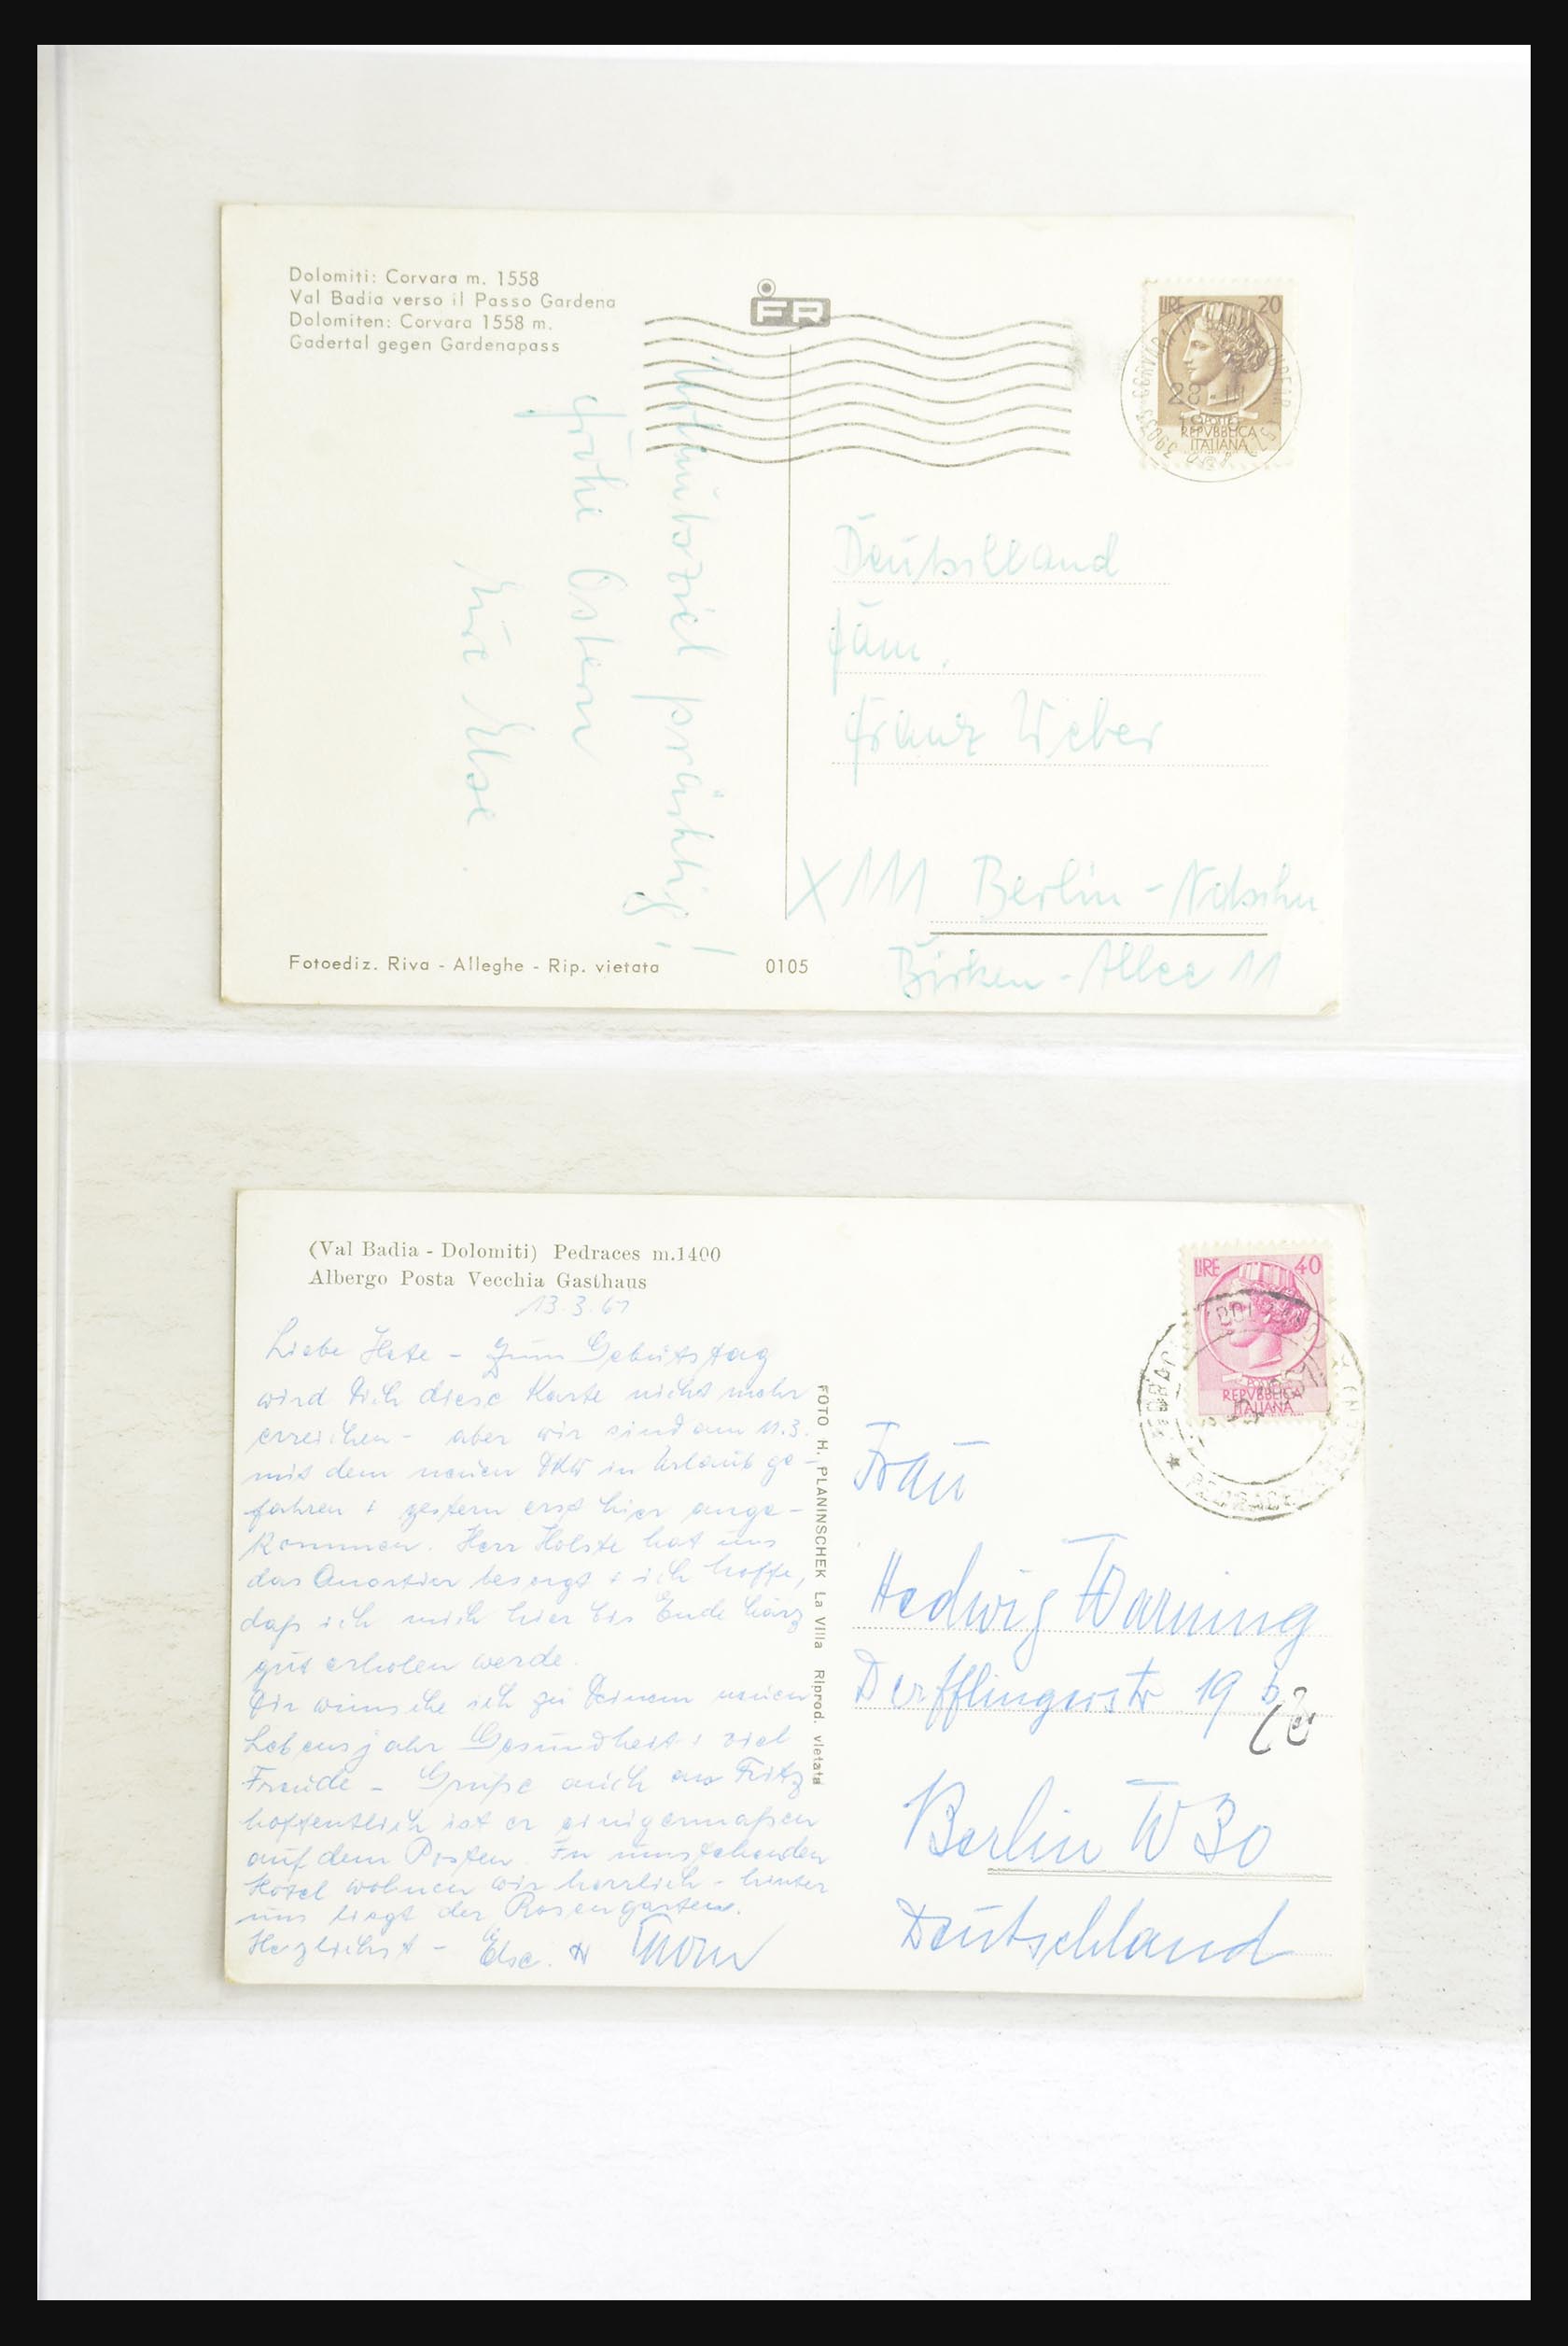 Dolomiti: Corvara m. 1558
Val Badia verso il Passo Gardena
Dolomiten: Corvara 1558 m.
Gadertal gegen Gardenapass
FR
LIRE 20
28 · III
REPVBBLICA
ITALIANA
prächtig!
Frohe Ostern
Eure Else.
Deutschland
Fam.
Franz Weber
X 111 Berlin - Ndschn
Birken - Allee 11
Fotoediz. Riva - Alleghe - Rip. vietata
0105
(Val Badia - Dolomiti) Pedraces m.1400
Albergo Posta Vecchia Gasthaus
13.3.61
Liebe Hete - Zum Geburtstag
wird Dich diese Karte nicht mehr
erreichen - aber wir sind am 11.3.
mit dem neuen DKW in Urlaub ge-
fahren + gestern erst hier ange-
kommen. Herr Holste hat uns
das Quartier besorgt + ich hoffe,
daß ich mich hier bis Ende März
gut erholen werde.
Dir wünsche ich zu Deinem neuen
Lebensjahr Gesundheit + viel
Freude - Grüße auch an Fritz
hoffentlich ist er einigermaßen
auf dem Posten. In umstehenden
Hotel wohnen wir herrlich - hinter
uns liegt der Rosengarten.
Herzlichst - Else.
FOTO H. PLANINSCHEK La Villa Riprod. vietata
LIRE 40
REPVBBLICA
ITALIANA
Frau
Hedwig Warning
Derfflingerstr 19 b
Berlin W 30
Deutschland